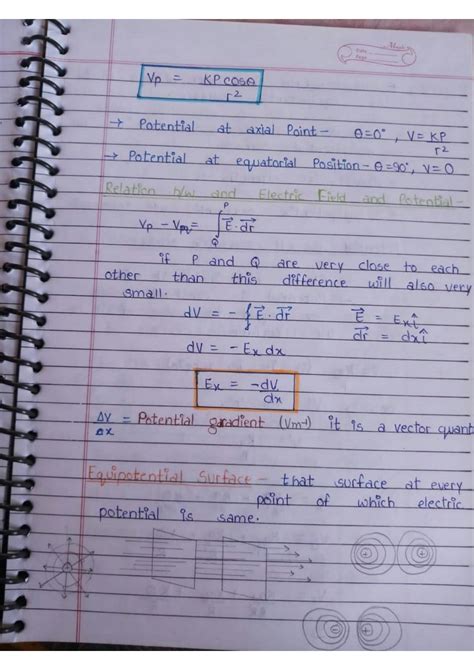 Vp = KP cosθ / r²
→ Potential at axial Point - θ=0°, V = KP / r²
→ Potential at equatorial Position - θ=90°, V=0
Relation b/w and Electric Field and Potential -
Vp - VQ = ∫ E⃗. dr⃗
P
Q
if P and Q are very close to each
other than this difference will also very
small.
dV = - ∫ E⃗. dr⃗ E⃗ = Ex î
dV = - Ex dx dr⃗ = dx î
Ex = -dV / dx
ΔV / Δx = Potential gradient (Vm⁻¹) it is a vector quant
Equipotential Surface - that surface at every
point of which electric
potential is same.
+ + + -